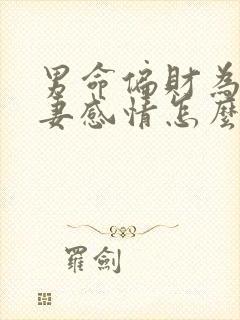 男命偏財為
妻感情怎麼
羅劍